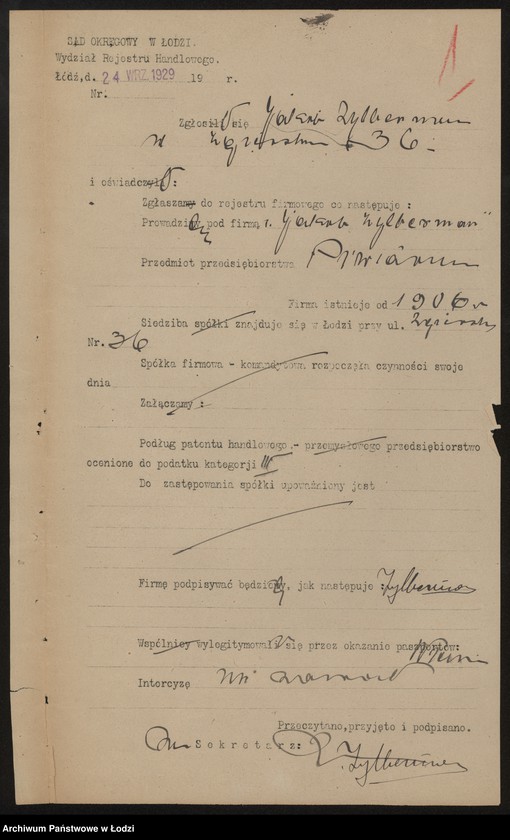 SĄD OKRĘGOWY W ŁODZI.
Wydział Rejestru Handlowego.
Łódź,d. 24 WRZ. 1929 19 r.
Nr.
1
Zgłosił się Jakob Zylberman
Zgierska 36
i oświadczył:
Zgłaszamy do rejestru firmowego co następuje :
Prowadzi pod firmą r. "Jakob Zylberman"
Przedmiot przedsiębiorstwa Piwiarnia
Firma istnieje od 1906 r
Siedziba spółki znajduje się w Łodzi przy ul. Zgierska
Nr. 36
Spółka firmowa - komandytowa rozpoczęła czynności swoje
dnia
Załączamy :
Podług patentu handlowego.- przemysłowego przedsiębiorstwo
ocenione do podatku kategorji III
Do zastępowania spółki upoważniony jest
Firmę podpisywać będzie, jak następuje : Zylberman
Wspólnicy wylegitymowali się przez okazanie paszportów:
Intercyzę nie zawarł
Przeczytano,przyjęto i podpisano.
Sekretarz: Zylberman
Archiwum Państwowe w Łodzi